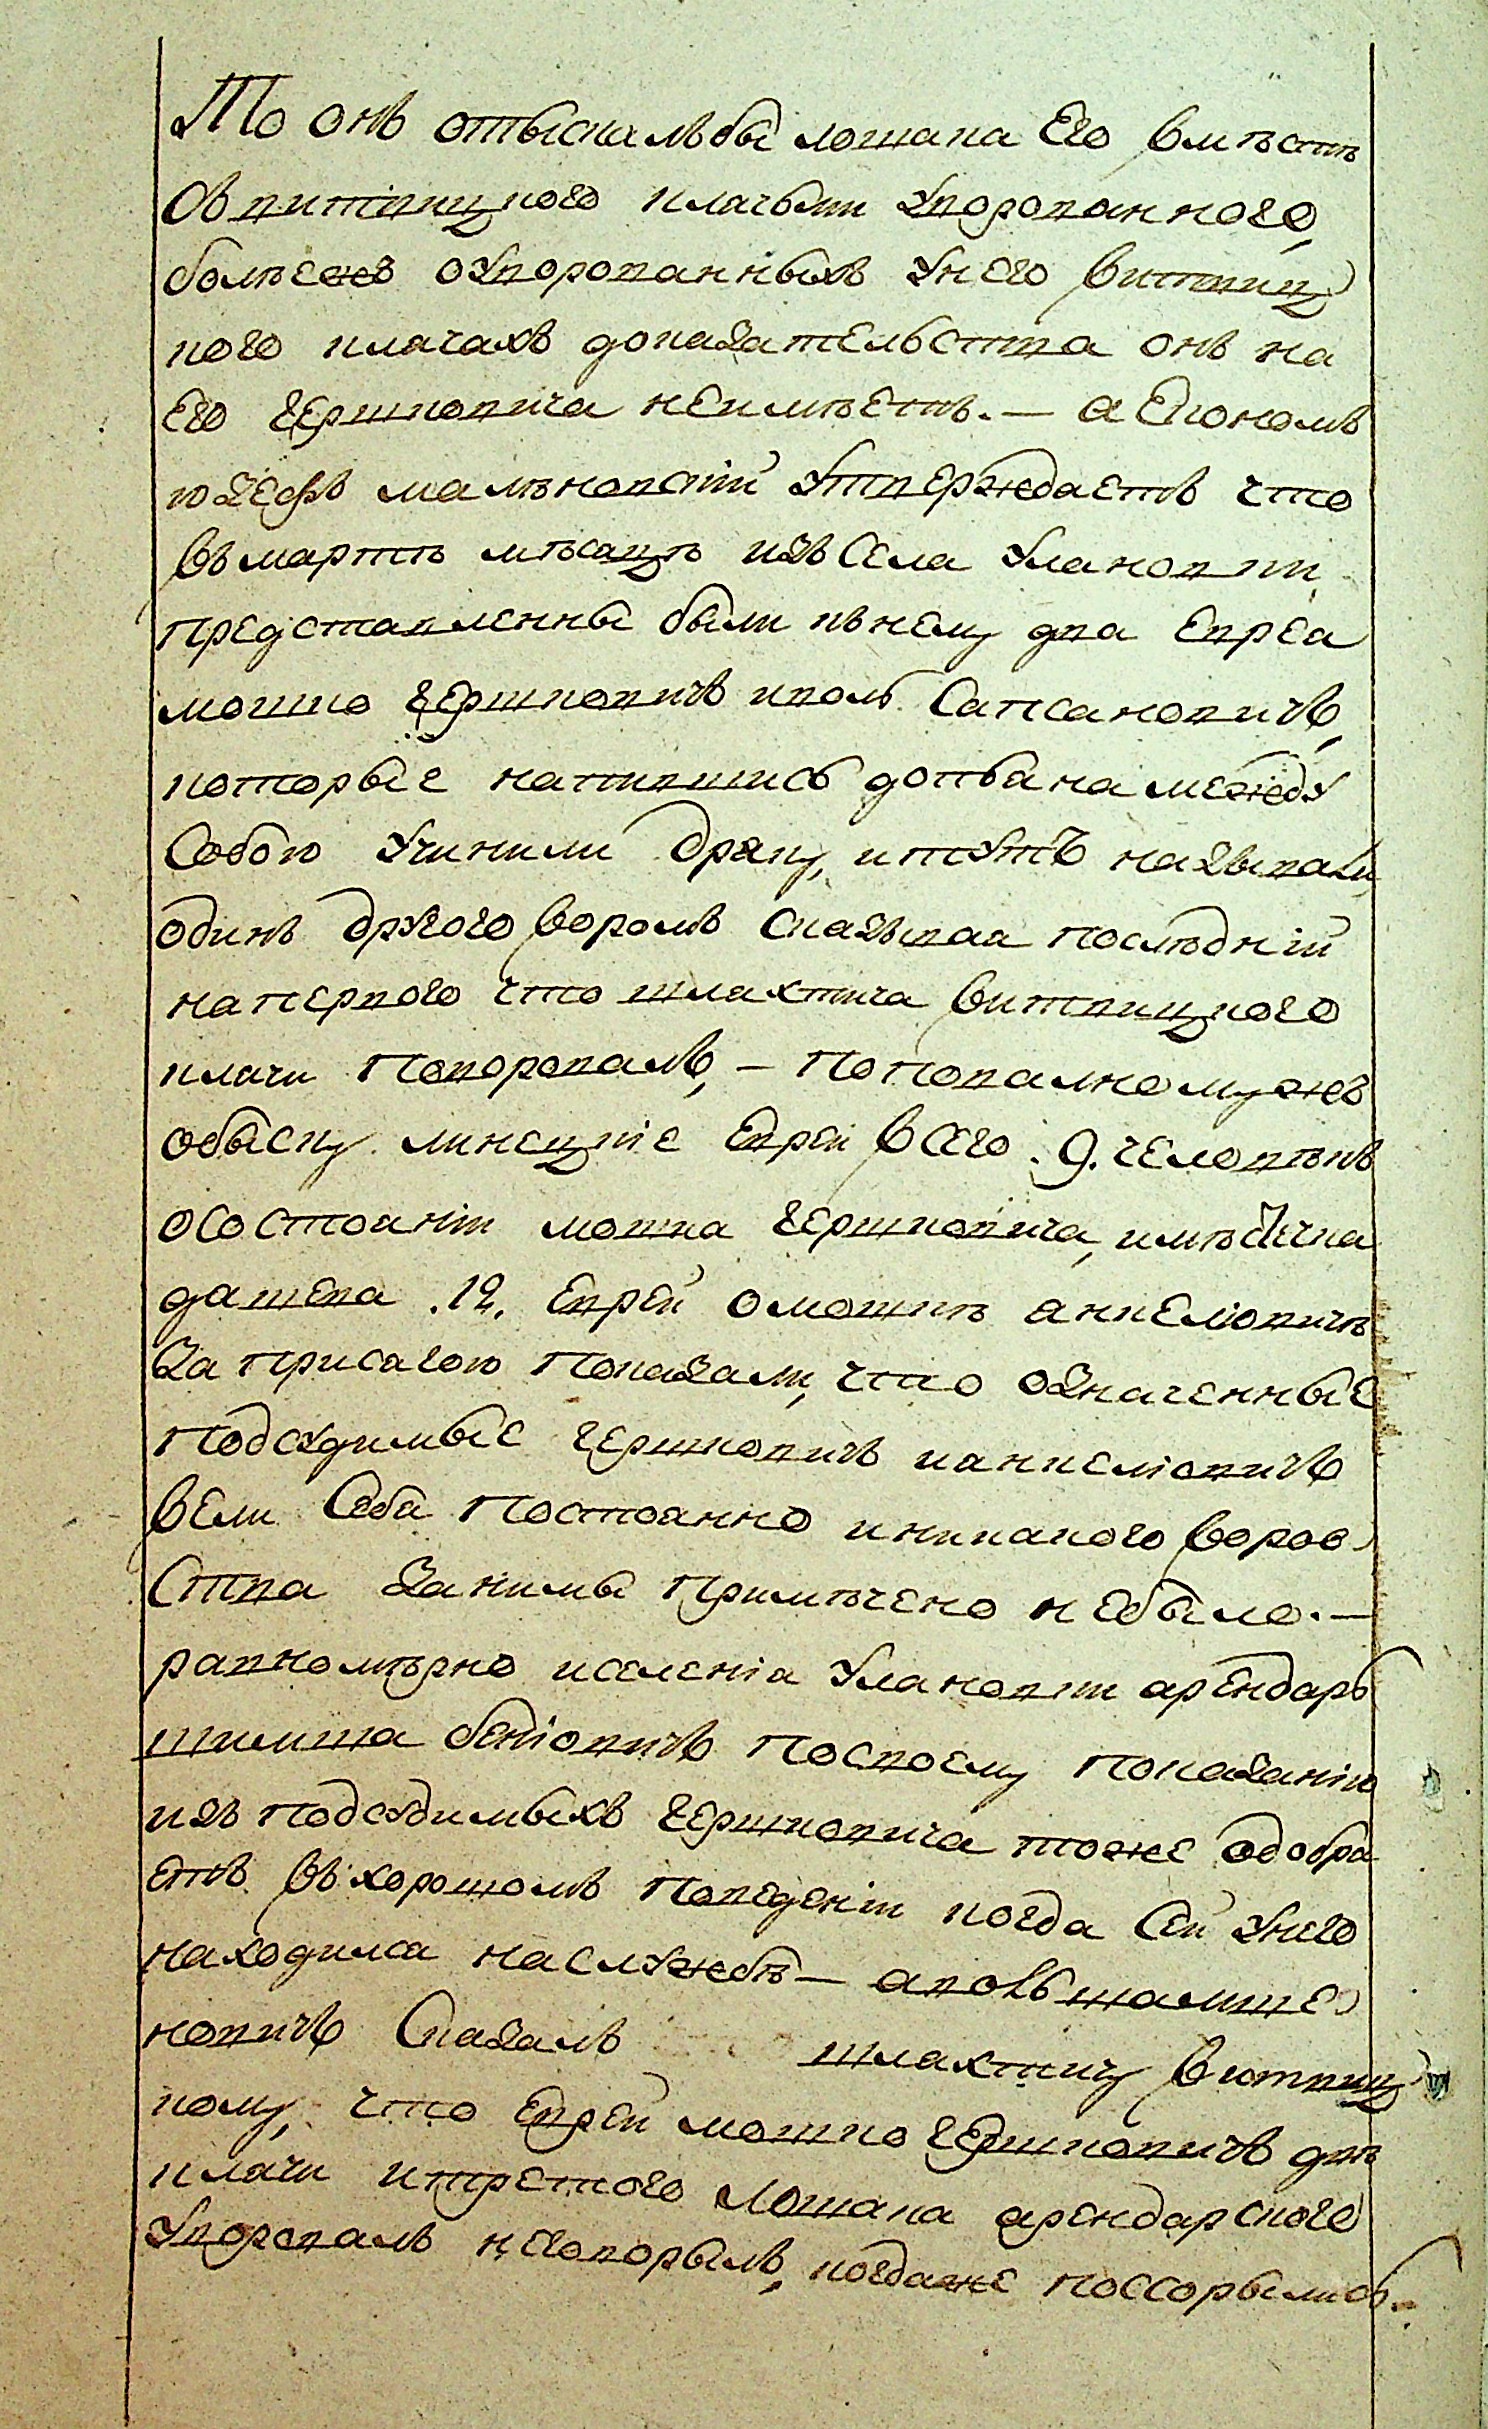 То онъ отыскалъ бы лошака Его вмѣстѣ
Съ витвицкого клячьми Уворованного,
болѣежъ оУворованныхъ Унего витвиц
кого клячахъ доказательства онъ на
Его гершковича неимѣетъ. — а Економъ
юзефъ мальновскій Утверждаетъ что
въ мартѣ мѣсяцѣ изъ Села Улановки
представленны были къ нему два Еврея
мошко гершковичъ иволь Сапсановичъ,
которые напившись допьяна между
Собою Учинили драку, итутъ называли
одинъ другого воромъ сказывая послѣдній
на первого что шляхтича витвицкого
клячи поворовалъ, — по повалномужъ
обыску линецкіе Евреи всего 9. человѣкъ
осостояніи мошка гершковича, имѣстечка
дашева .12. Еврей омошкѣ анкеліовичѣ
За присягою показали, что означенные
подсудимые гершковичъ ианкеліовичъ
вели Себя постоянно иникакого воров
Ства За ними примѣчено небыло. —
равномѣрно иселенія Улановки арендарь
шилиша беніовичъ посвоему показанію
изъ подсудимыхъ гершковича тоже одобря
етъ въ хорошомъ поведеніи когда Сей Унего
находился наслужбѣ — аволь шалише
новичъ Сказалъ шляхтичу витвиц
кому, что Еврей мошко гершковичъ двѣ
клячи итретого лошака арендарского
Уворовалъ неговорылъ, когдаже поссорылись.